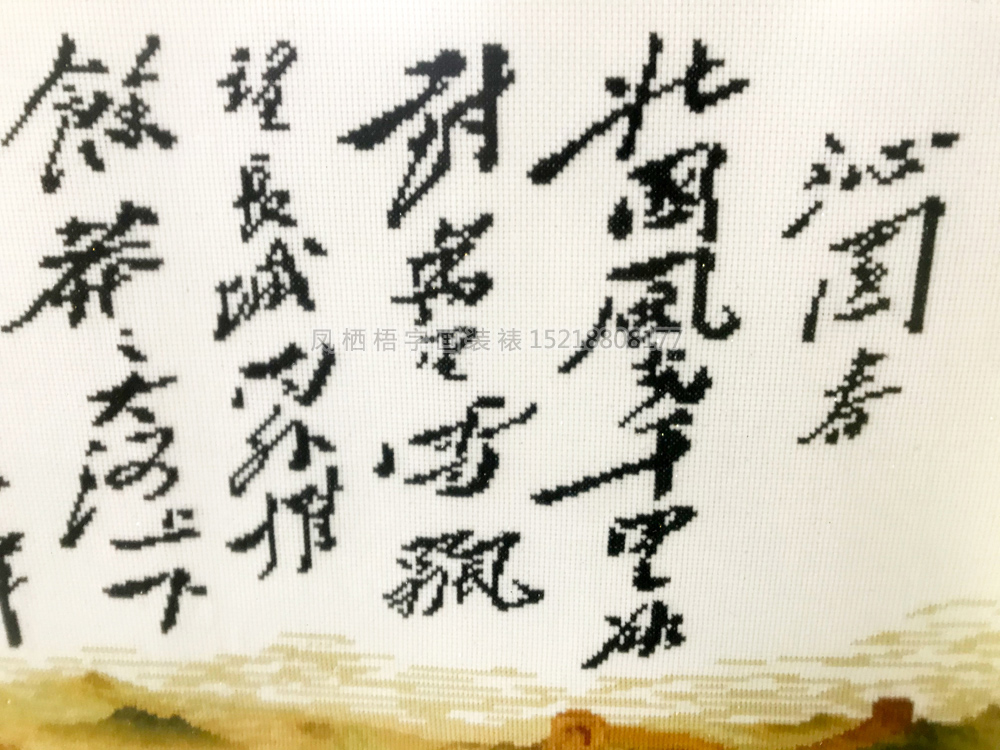 沁園春
北國風光千里冰
封萬里雪飄
望長城内外惟
餘莽〻大河上下
凤栖梧字画装裱